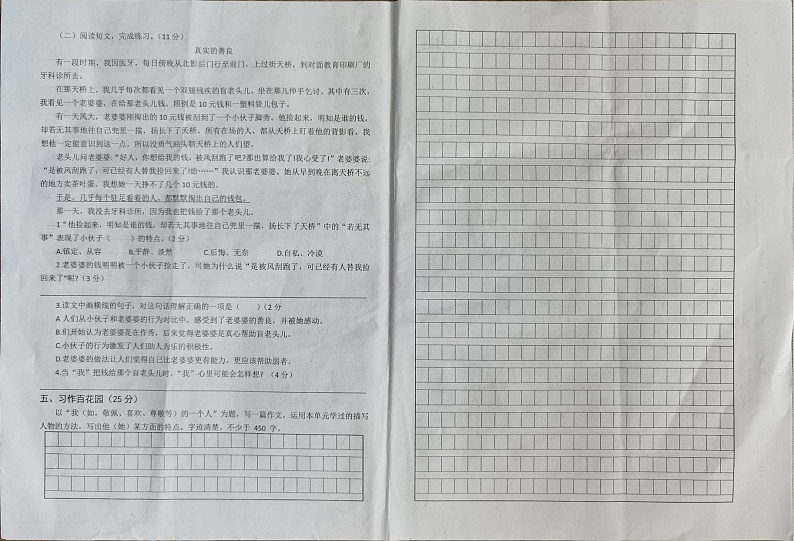 （二）阅读短文，完成练习。（11 分）
真实的善良
有一段时期，我因医牙，每日傍晚从北影后门行至前门，上过街天桥，到对面教育印刷厂的
牙科诊所去。
在那天桥上，我几乎每次都看见一个双腿残疾的盲老头儿，坐在那儿伸手乞讨。其中有三次，
我看见一个老婆婆，在给那老头儿钱。照例是 10 元钱和一塑料袋儿包子。
有一天风大，老婆婆刚掏出的 10 元钱被刮到了一个小伙子脚旁。他捡起来，明知是谁的钱，
却若无其事地往自己兜里一揣，扬长下了天桥。所有在场的人，都从天桥上盯着他的背影看。我
想他一定能意识到这一点，所以没勇气回头朝天桥上的人们望。
老头儿问老婆婆：“好人，你想给我的钱，被风刮跑了吧?那也算给我了!我心受了!”老婆婆说:
“是被风刮跑了，可已经有人替我捡回来了!给……”我认识那老婆婆。她从早到晚在离天桥不远
的地方卖茶叶蛋。我想她一天挣不了几个 10 元钱的。
于是，几乎每个驻足看着的人，都默默掏出自己的钱包。
那一天，我没去牙科诊所，因为也把钱给了那个老头儿。
1“他捡起来，明知是谁的钱，却若无其事地往自己兜里一揣，扬长下了天桥”中的“若无其
事”表现了小伙子（　　）的特点。（2 分）
A.镇定、从容　B.平静、淡然　C.后悔、无奈　D.自私、冷漠
2.老婆婆的钱明明被一个小伙子捡走了，可她为什么说“是被风刮跑了，可已经有人替我捡
回来了”呢?（3 分）
3.读文中画横线的句子，对这句话理解正确的一项是（　　）（2 分
A 人们从小伙子和老婆婆的行为对比中，感受到了老婆婆的善良，并被她感动。
B.们开始认为老婆婆是在作秀，后来觉得老婆婆是真心帮助盲老头儿。
C.小伙子的行为激发了人们助人为乐的积极性。
D.老婆婆的做法让人们觉得自己比老婆婆更有能力，更应该帮助弱者。
4.当“我”把钱给那个盲老头儿时，“我”心里可能会怎样想?（4 分）
五、习作百花园（25 分）
以“我（如，敬佩、喜欢、尊敬等）的一个人”为题，写一篇作文，运用本单元学过的描写
人物的方法，写出他（她）某方面的特点。字迹清楚，不少于 450 字。